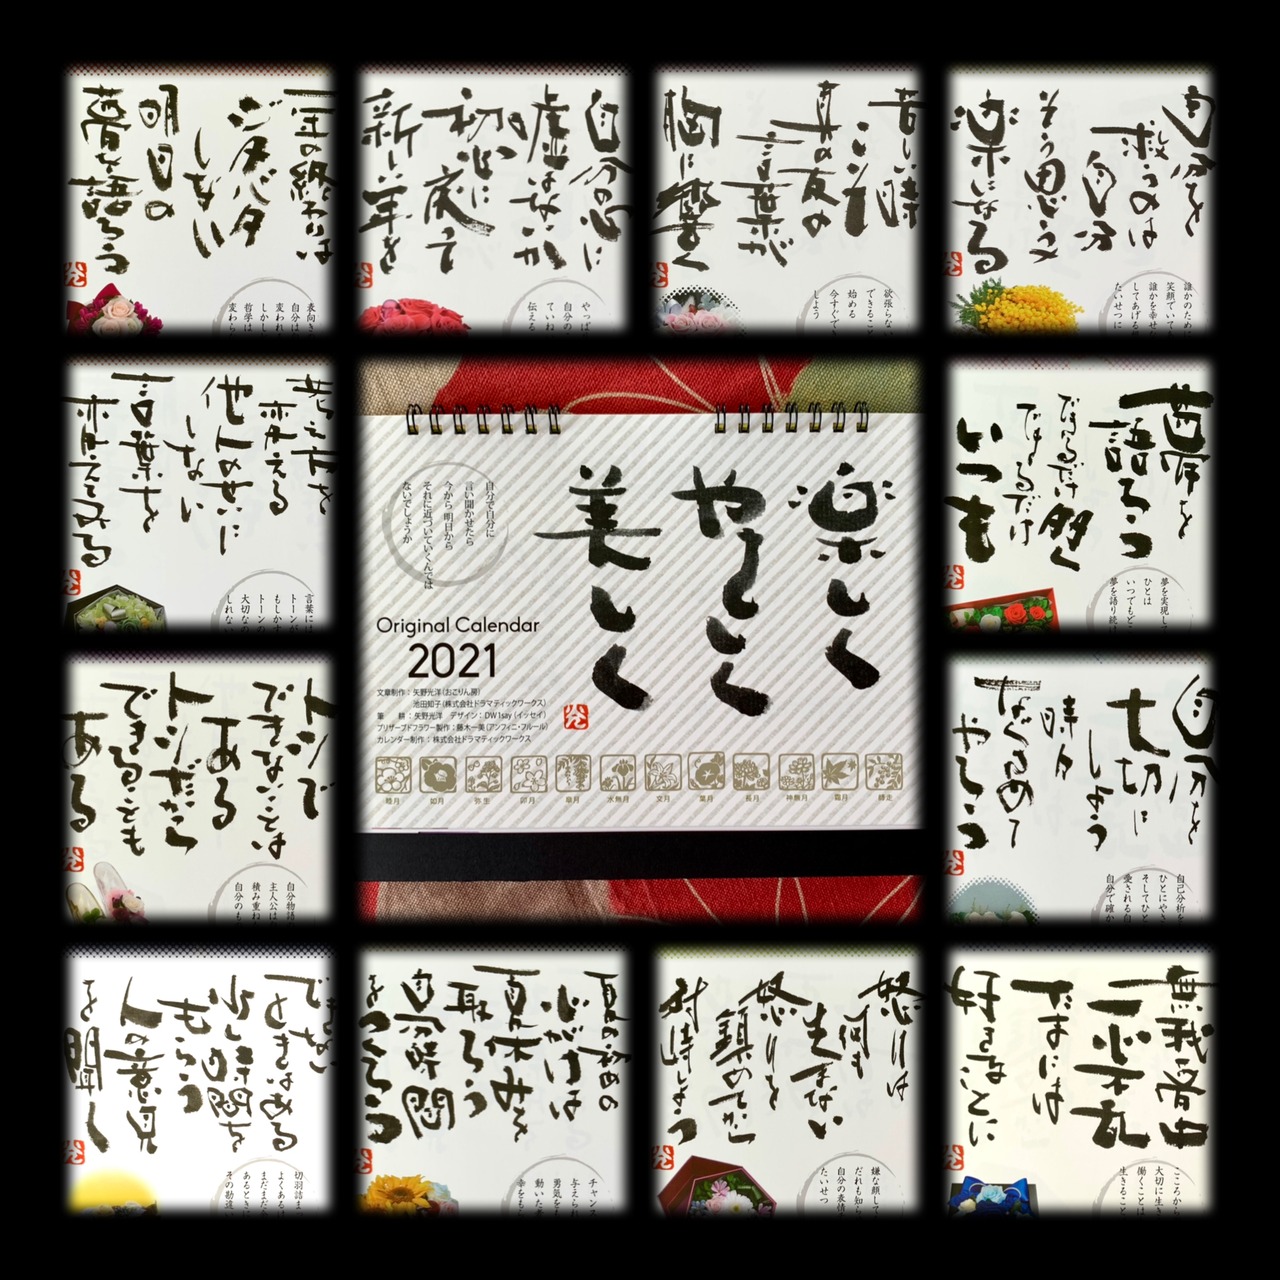 一年の終わりは
ジタバタ
しない
明日の
夢を語ろう
表向き
自分は
変われ
しかし
哲学は
変わら
自分の心に
嘘はないか
初心に
戻って
新しい年を
やっぱ
自分の
ていね
伝える
苦しい時
こそ
真の友の
言葉が
胸に響く
欲張らない
できること
始める
今すぐでき
しよう
自分を
救うのは
自分
そう思うと
楽になる
誰かのために
笑顔でいて
誰かを幸せ
してあげる
たいせつに
考え方を
変える
他人のせいに
しない
言葉を
変えてみる
言葉には
トーンが
もしかす
トーンの
大切なの
しれない
楽しく
やさしく
美しく
自分で自分に
言い聞かせたら
今から明日から
それに近づいていくんでは
ないでしょうか
Original Calendar
2021
文章制作：矢野光洋（おこりん房）
池田知子（株式会社ドラマティックワークス）
筆　耕：矢野光洋　デザイン：DW1say（イッセイ）
プリザーブドフラワー製作：藤木一美（アンフィニ・フルール）
カレンダー制作：株式会社ドラマティックワークス
睦月 如月 弥生 卯月 皐月 水無月 文月 葉月 長月 神無月 霜月 師走
夢を
語ろう
できるだけ多く
できるだけ
いつも
夢を実現し
ひとは
いつでもど
夢を語り続
トシで
できないことは
ある
トシだから
できることも
ある
自分物語
主人公は
積み重ね
自分のも
自分を
大切に
しよう
時々
なぐさめて
やろう
自己分析を
ひとにやさ
そしてひと
愛される自
自分で確か
できない
ときはある
少し時間を
もらう
人の意見
を聞く
切羽詰ま
よくあるは
まだまだ
あるときに
その勘違い
夏の終わりの
心がけは
夏休みを
取ろう
自分時間
をつくろう
チャンス
与えられ
勇気を
動いた
幸をも
怒りは
何も
生まない
怒りを
鎮めてから
対峙しよう
嫌な顔して
だれも知ら
自分の表情
たいせつ
無我夢中
一心不乱
たまには
好きなことに
こころから
大切に生き
働くことは
生きること